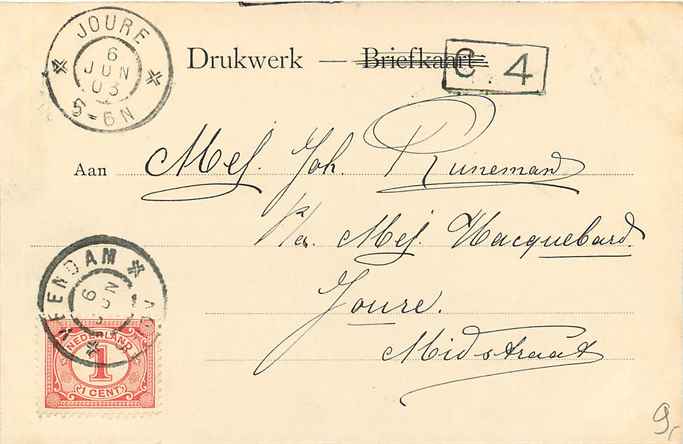 JOURE
6
JUN
03
5-6N
Drukwerk — Briefkaart
C 4
Aan Mej. Joh. Runeman
p/a. Mej. Hacquebard.
Joure.
Midstraat
VEENDAM
6
JUN
NEDERLAND
1
1 CENT
9,